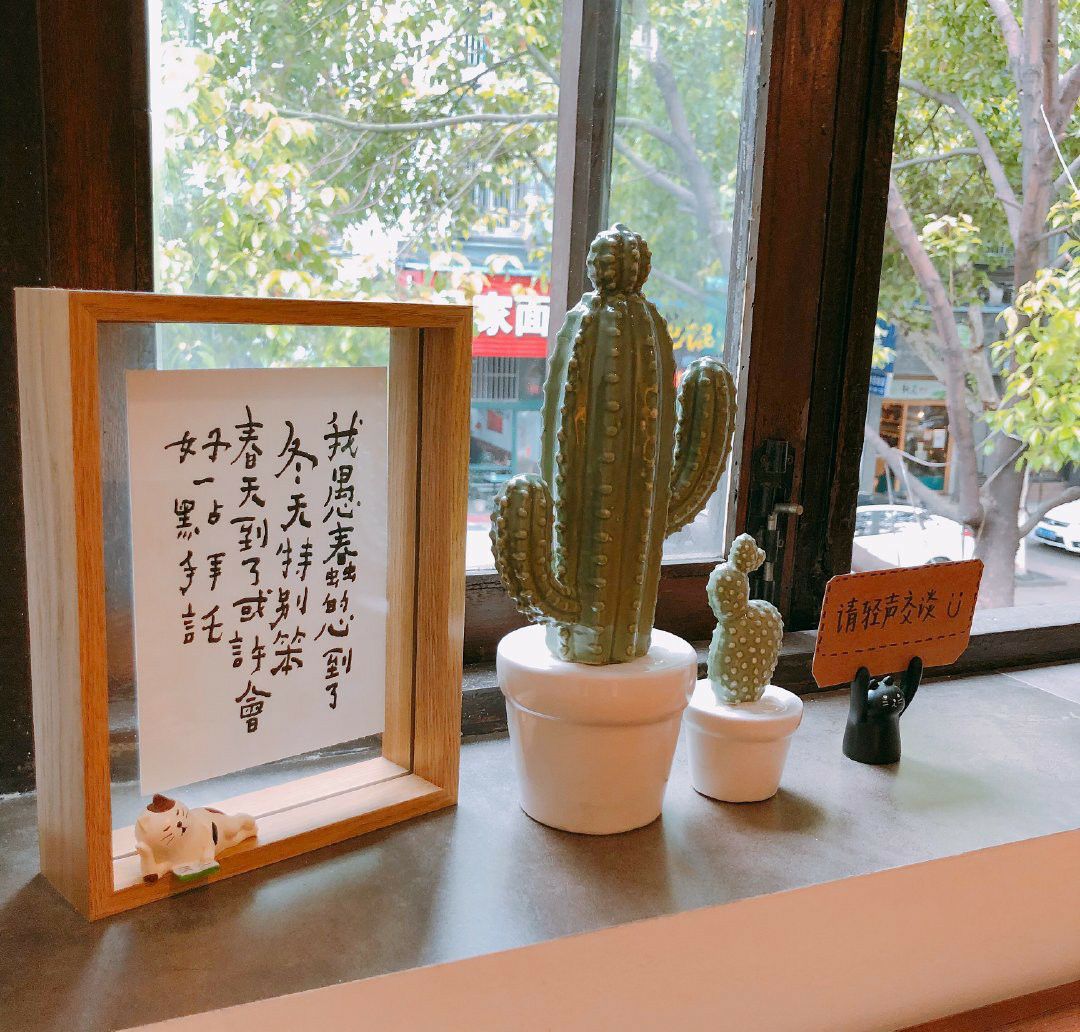 我愚蠢的心到了
冬天特別笨
春天到了或許會
好一點拜託
请轻声交谈
家面